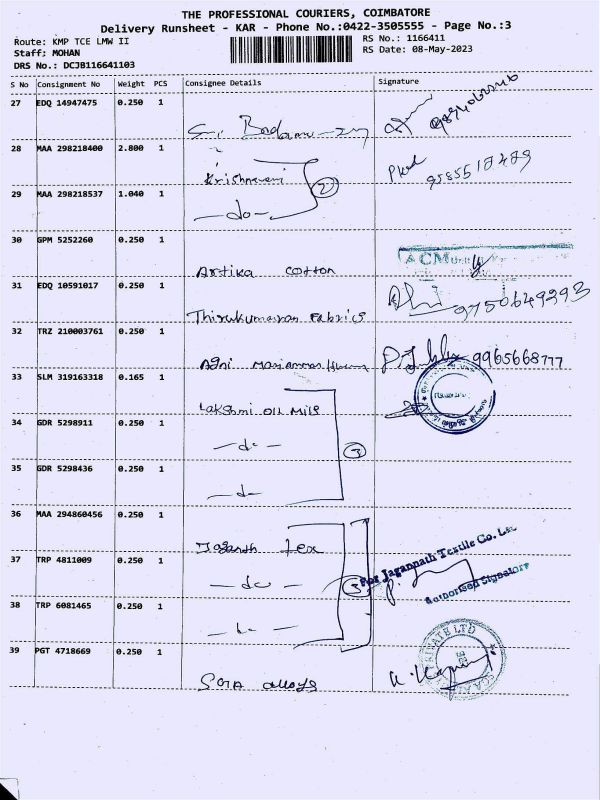 THE PROFESSIONAL COURIERS, COIMBATORE
Delivery Runsheet - KAR - Phone No.:0422-3505555 - Page No.:3
Route: KMP TCE LMW II
RS No.: 1166411
Staff: MOHAN
RS Date: 08-May-2023
DRS No.: DCJB116641103
S No Consignment No Weight PCS Consignee Details Signature
27 EDQ 14947475 0.250 1
28 MAA 298218400 2.800 1
Krishnaveni
2
9585518489
29 MAA 298218537 1.040 1
-do-
30 GPM 5252260 0.250 1
Artika cotton
ACM
31 EDQ 10591017 0.250 1
Thirukumaran Fabrics
9750649293
32 TRZ 210003761 0.250 1
Agni Mariamman
9965668777
33 SLM 319163318 0.165 1
Lakshmi Oil Mils
34 GDR 5298911 0.250 1
-do-
3
35 GDR 5298436 0.250 1
-do-
36 MAA 294860456 0.250 1
Jaganath tex
For Jagannath Textile Co. Ltd
37 TRP 4811009 0.250 1
-do-
3
Authorised Signatory
38 TRP 6081465 0.250 1
39 PGT 4718669 0.250 1
alloys
PRIVATE LTD